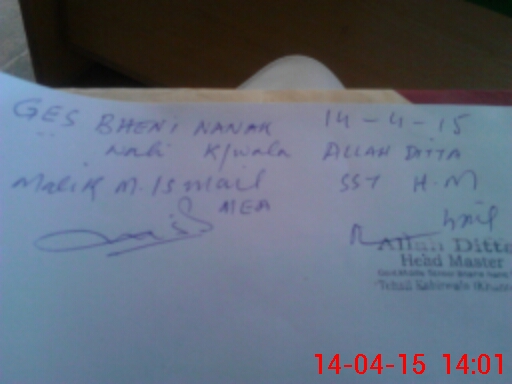 GES BHENI NANAK 14-4-15
Wali K/wala ALLAH DITTA
Malik M. Ismail SST H.M
MEA
Allah Ditta
Head Master
Tehsil Kabirwala
14-04-15 14:01